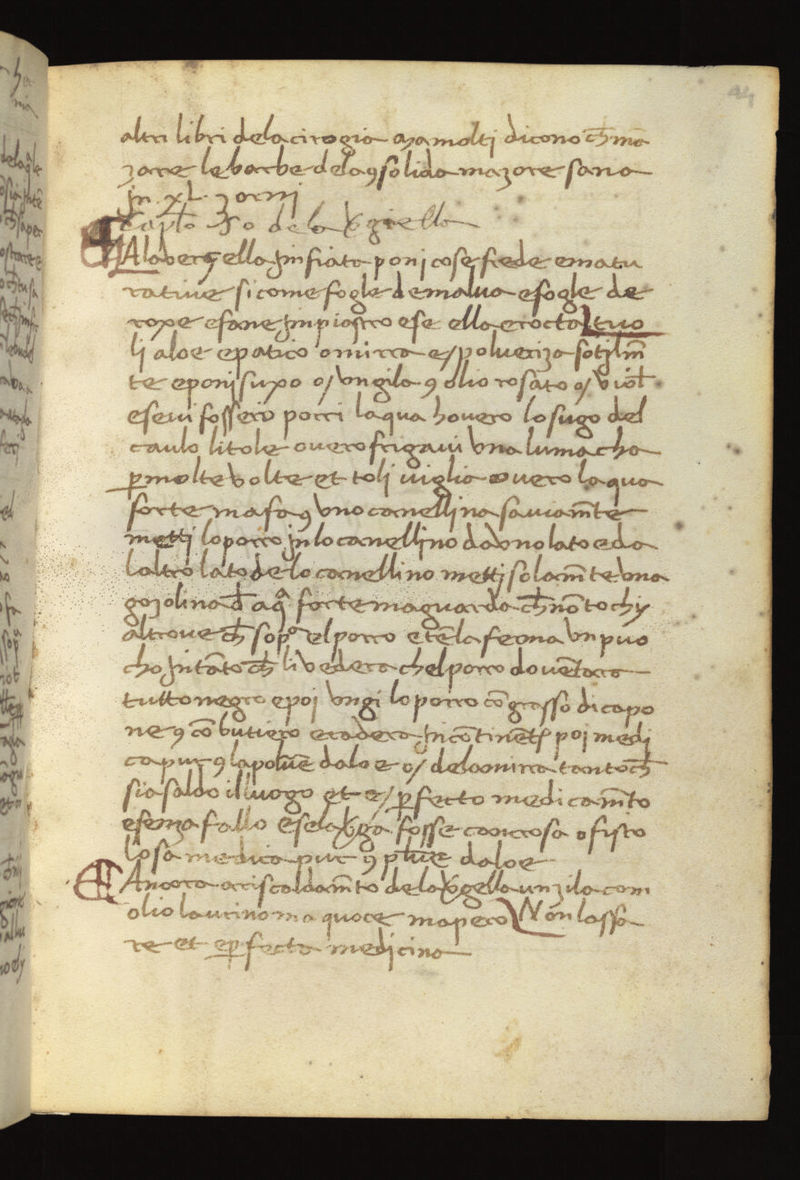 44
altri libri dela cirogia Ma molti dicono ch̄ mā
zare le barbe dela ꝯsolida mazore sana
jn .xl. zorni
Caplo de la v̄giella
Ala vergella Jnfiata ponj cose frede e matu
rative si come fogle de malva e fogle de
roxe e fane Jnpiastro e se ella e rocta tuo
li aloe epatico o mirra e polveriza sotilm̄
te e ponj suxo o ungila ꝯ olio rosato o viol
e se vi fossero porri laqua hovero lo sugo del
caulo litole overo frigavi una lumacha
ꝑ molte volte et toli viglia overo laqua
forte ma fa ꝯ uno canellino saviam̄te
metti lo porro Jn lo canellino da uno lato e da
laltro lato de lo canellino metti solam̄te una
gozolina d̄ aqa forte ma guarda ch̄ nō tochj
altrove ch̄ sopa el porro e tēla ferma un puo
cho Jntāto ch̄ li vedera chel porro doventara
tutto negro e poi ungi lo porro cō grasso di capo
ne ꝯ cō butiero e cadera Jncōtinēte poi medi
ca pur ꝯ la polve daloe o dela mirra tanto ch̄
sia saldo il luogo et e ꝑfecto medicam̄to
e senza fallo e se la v̄ga fosse cancrosa o fisto
losa medica pur ꝯ plve daloe
Ancora arriscaldam̄to dela v̄gella unzila com
olio laurino ma quoce ma pero Non lassa
re et e ꝑfecta medicina